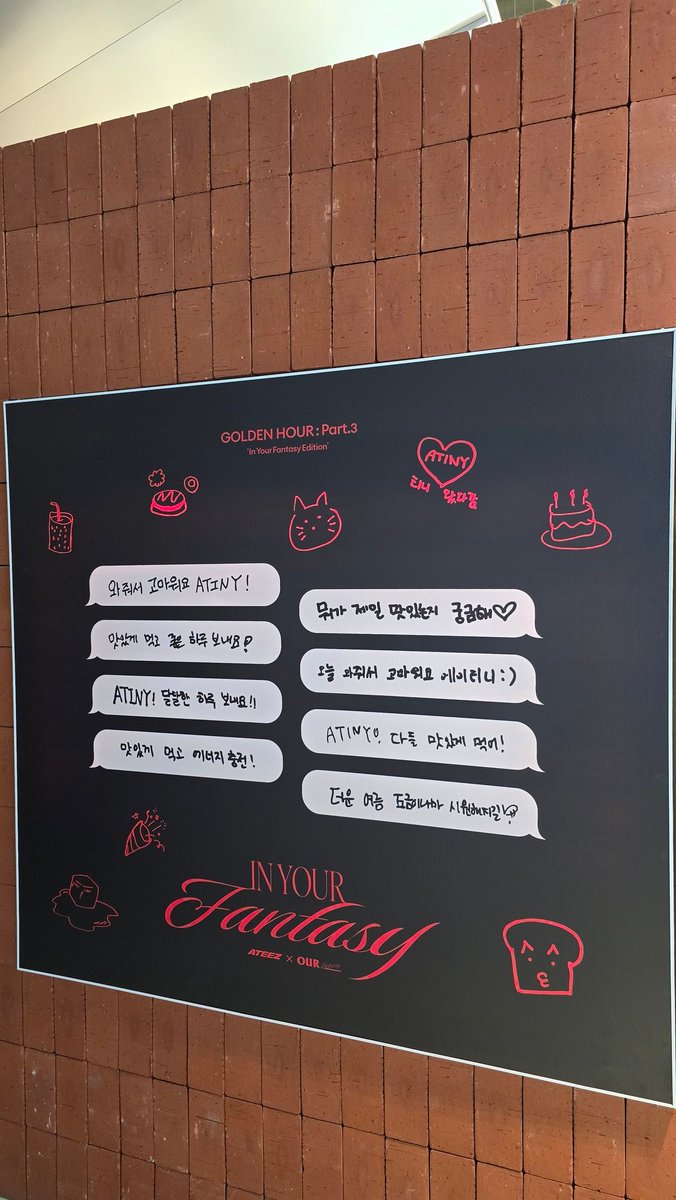 GOLDEN HOUR : Part.3
'In Your Fantasy Edition'
ATINY
티니 왔다감
와줘서 고마워요 ATINY!
맛있게 먹고 좋은 하루 보내요!
ATINY! 달달한 하루 보내요!!
맛있게 먹고 에너지 충전!
뭐가 제일 맛있는지 궁금해♡
오늘 와줘서 고마워요 에이티니 :)
ATINY!, 다들 맛있게 먹어!
더운 여름 조금이나마 시원해지길
IN YOUR
Fantasy
ATEEZ × OUR